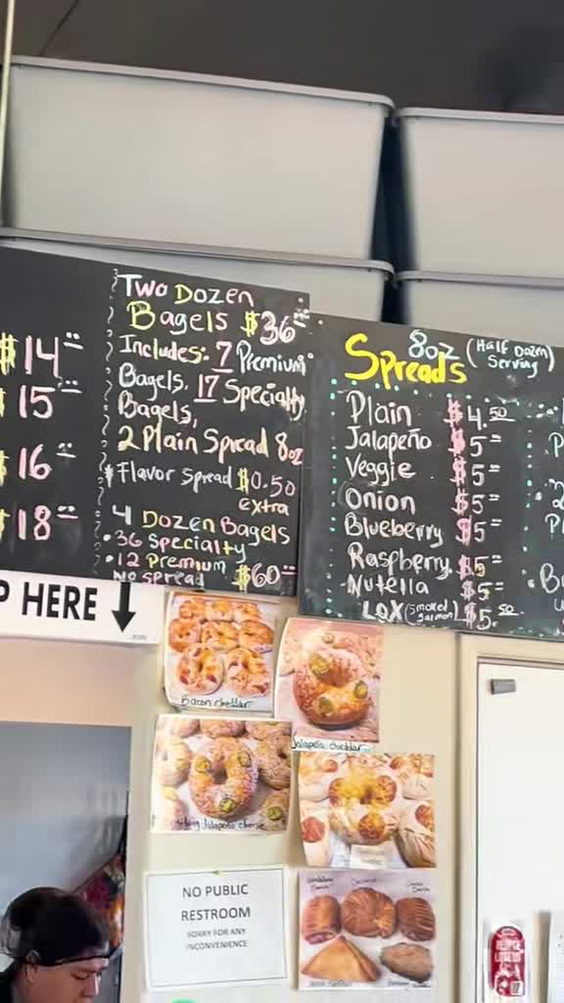 $14
15
$16
$18
Two Dozen
Bagels $36
Includes: 7 Premium
Bagels, 17 Specialty
Bagels,
2 Plain Spread 8oz
Flavor Spread $0.50
extra
4 Dozen Bagels
• 36 Specialty
• 12 Premium
No spread $60
8oz (Half Dozen
Serving)
Spreads
Plain $4.50
Jalapeño $5
Veggie $5
Onion $5
Blueberry $5
Raspberry $5
Nutella $5
LOX (smoked
salmon) $5.50
P HERE
Bacon cheddar
Jalapeño cheddar
Jalapeño cheese
NO PUBLIC
RESTROOM
SORRY FOR ANY
INCONVENIENCE